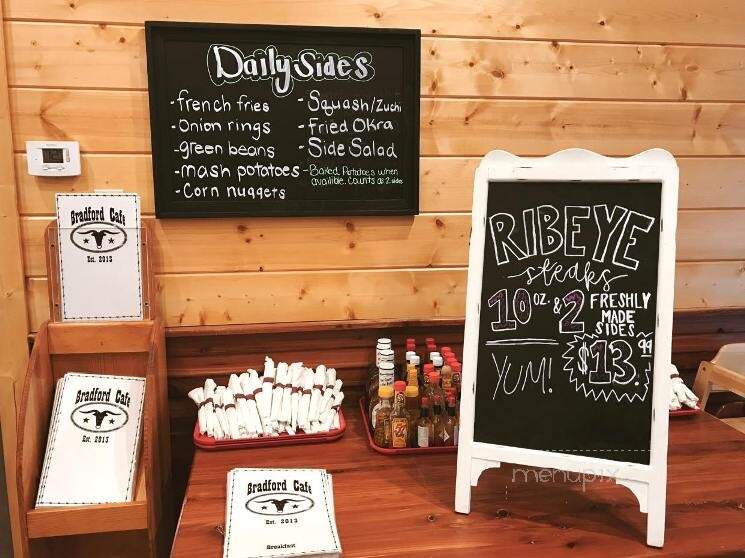 Daily Sides
-french fries
-Onion rings
-green beans
-mash potatoes
-Corn nuggets
-Squash/Zuchi
-Fried Okra
-Side Salad
-Baked Potatoes when
available. Counts as 2 sides
Bradford Cafe
Est. 2013
Bradford Cafe
Est. 2013
Bradford Cafe
Est. 2013
Breakfast
RIBEYE
steaks
10 oz. & 2 FRESHLY
MADE
SIDES
YUM! $13.99
menupix